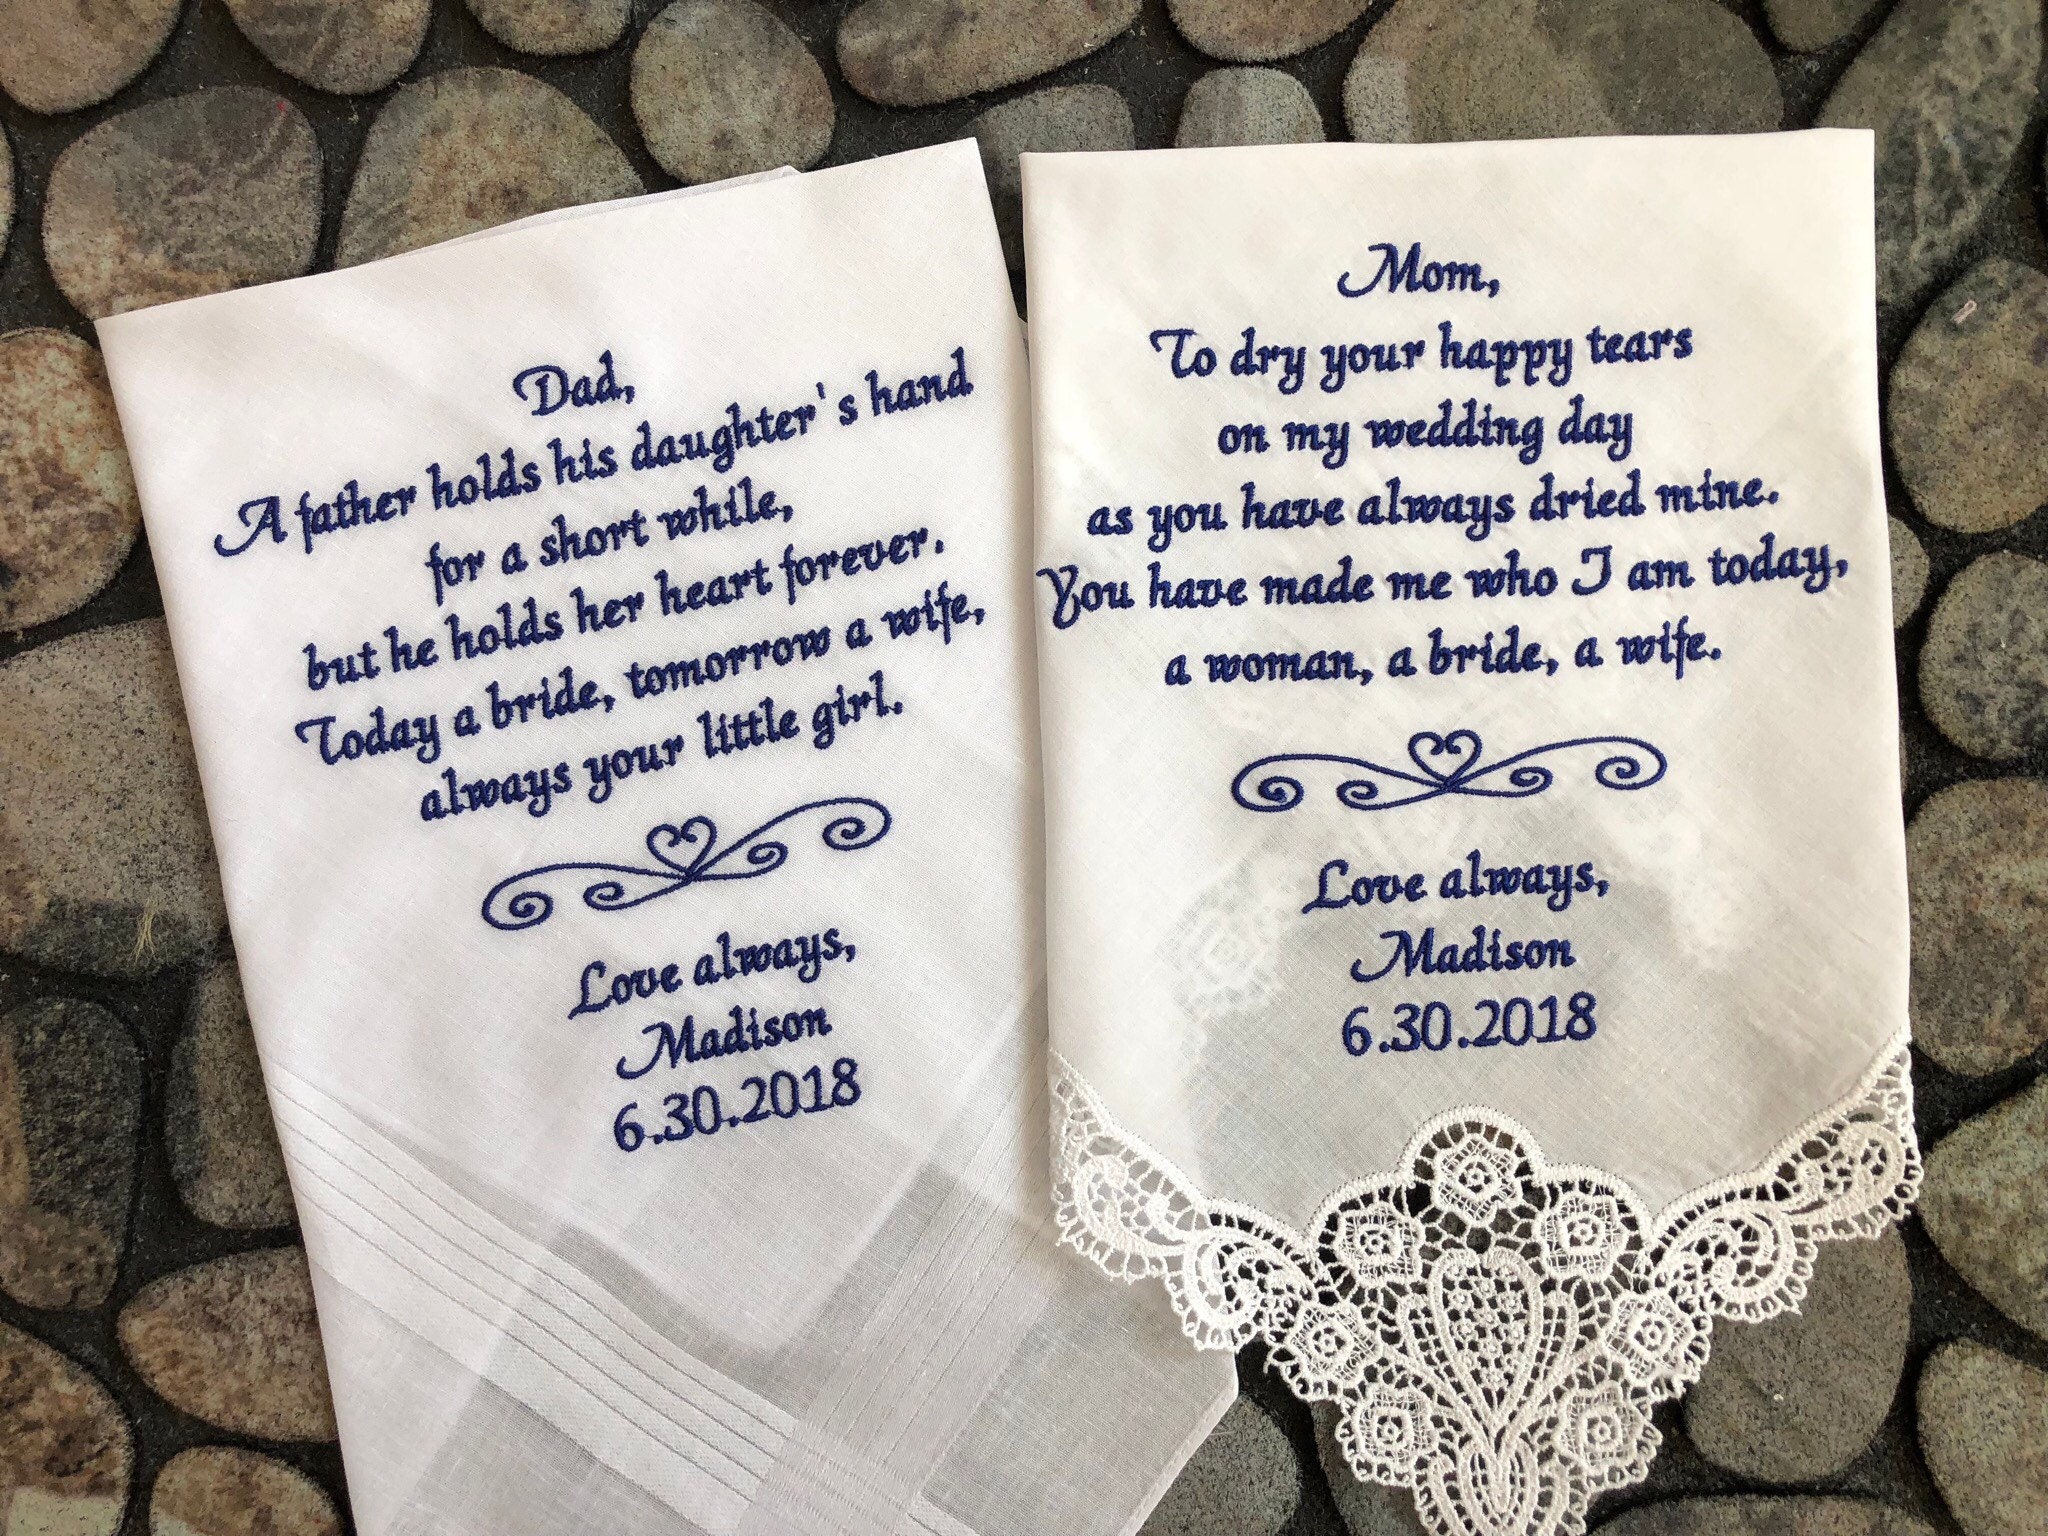 Dad,
A father holds his daughter's hand
for a short while,
but he holds her heart forever.
Today a bride, tomorrow a wife,
always your little girl.
Love always,
Madison
6.30.2018
Mom,
To dry your happy tears
on my wedding day
as you have always dried mine.
You have made me who I am today,
a woman, a bride, a wife.
Love always,
Madison
6.30.2018